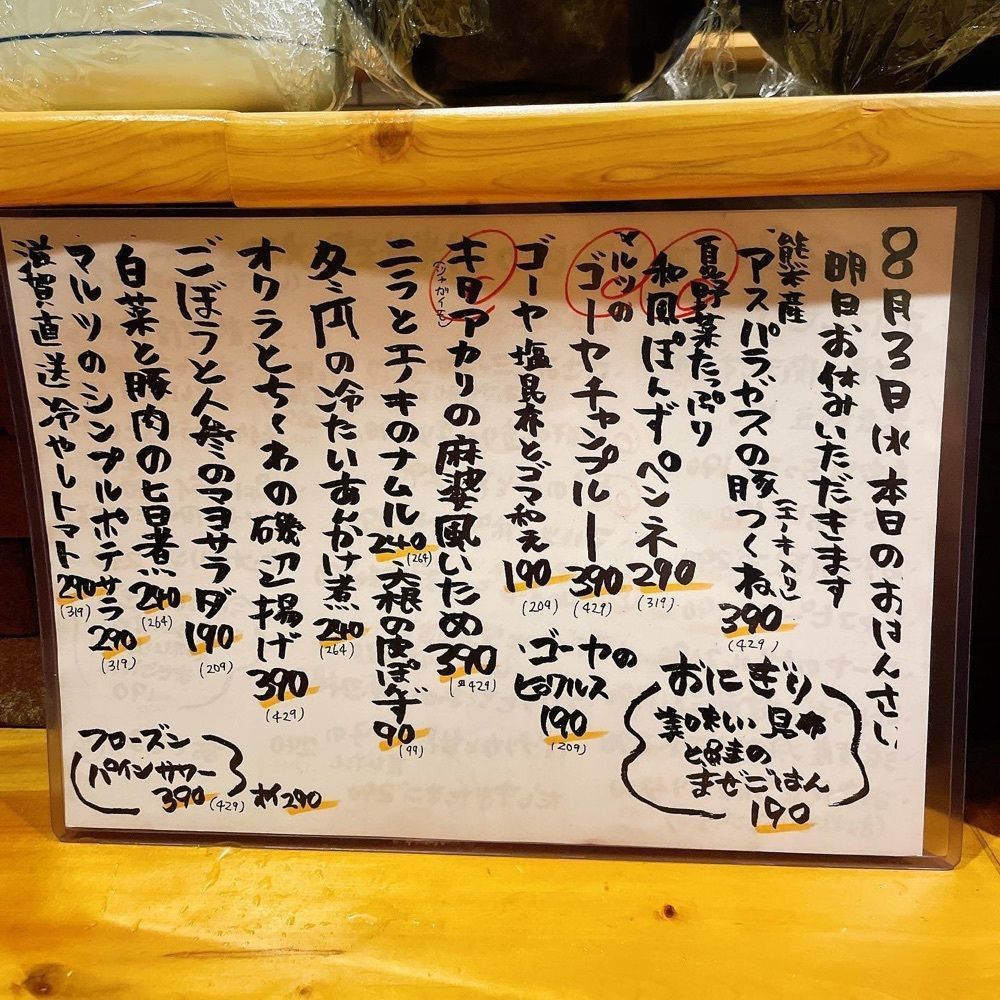 8月3日(水)本日のおばんさい
明日お休みいただきます
熊本産
アスパラガスの豚つくね(エノキ入り)
390
(429)
夏野菜たっぷり
和風ぽんずペンネ
290
(319)
マルツの
ゴーヤチャンプルー
390
(429)
ゴーヤ塩昆布とゴマ和え
190
(209)
キタアカリの麻婆風いため
(ジャガイモ)
390
(429)
ニラとエノキのナムル
240
(264)
大根の皮ぽんず
90
(99)
冬瓜の冷たいあんかけ煮
240
(264)
オクラとちくわの磯辺揚げ
390
(429)
ごぼうと人参のマヨサラダ
190
(209)
白菜と豚肉の旨煮
240
(264)
マルツのシンプルポテサラ
290
(319)
滋賀直送冷やしトマト
290
(319)
ゴーヤの
ピクルス
190
(209)
おにぎり
美味い昆布
と鮭の
まぜごはん
190
フローズン
パインサワー
390
(429)
290